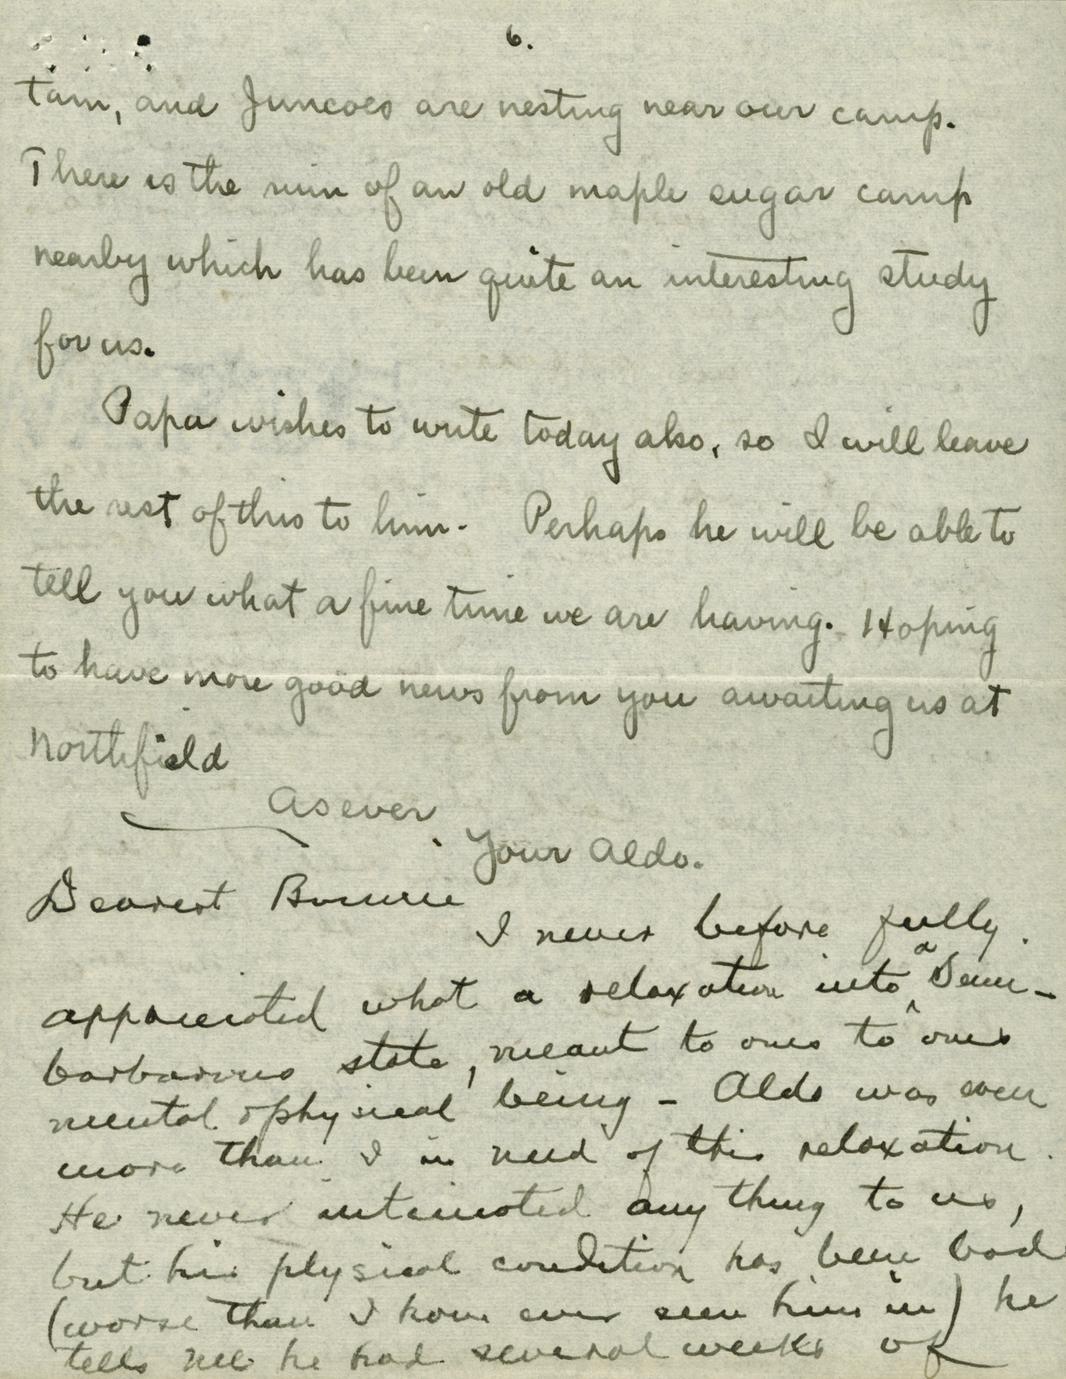 6.
tain, and Juncoes are nesting near our camp.
There is the ruin of an old maple sugar camp
nearby which has been quite an interesting study
for us.
Papa wishes to write today also, so I will leave
the rest of this to him. Perhaps he will be able to
tell you what a fine time we are having. Hoping
to have more good news from you awaiting us at
Northfield
As ever
Your Aldo.
Dearest
I never before fully
appreciated what a relaxation into a Semi-
barbarous state, meant to ones to ones
mental & physical being - Aldo was even
more than I in need of this relaxation.
He never intimated any thing to us,
but his physical condition has been bad
(worse than I have ever seen him in) he
tells me he had several weeks of